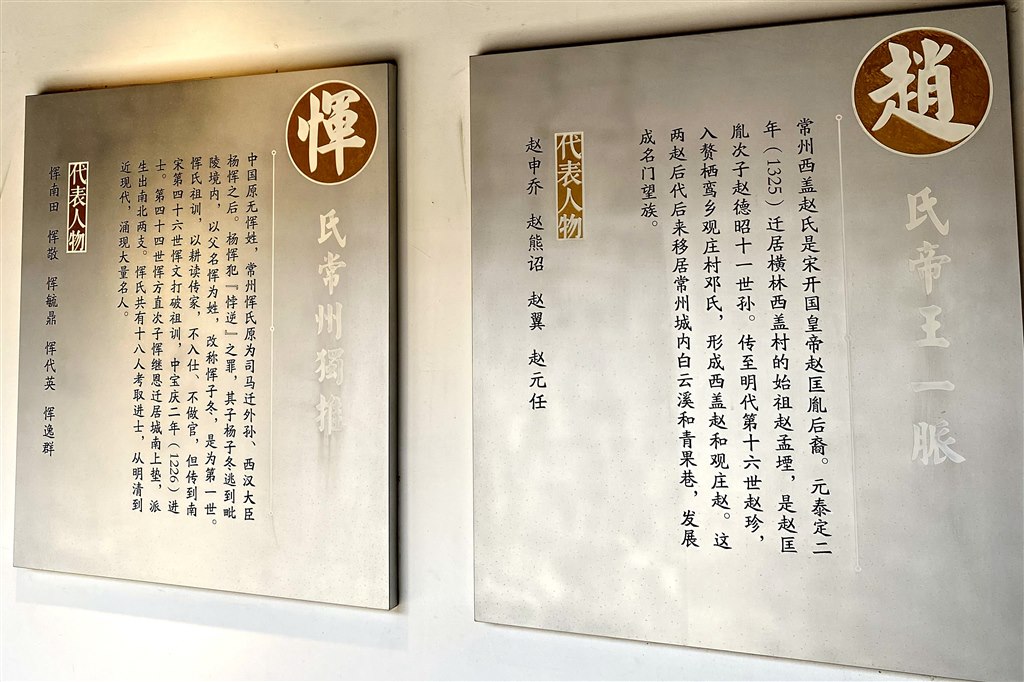 趙
氏帝王一脈
常州西盖赵氏是宋开国皇帝赵匡胤后裔。元泰定二
年（1325）迁居横林西盖村的始祖赵孟堙，是赵匡
胤次子赵德昭十一世孙。传至明代第十六世赵珍，
入赘栖鸾乡观庄村邓氏，形成西盖赵和观庄赵。这
两赵后代后来移居常州城内白云溪和青果巷，发展
成名门望族。
代表人物
赵申乔 赵熊诏 赵翼 赵元任
惲
氏常州獨推
中国原无恽姓，常州恽氏原为司马迁外孙、西汉大臣
杨恽之后。杨恽犯『悖逆』之罪，其子杨子冬逃到毗
陵境内，以父名恽为姓，改称恽子冬，是为第一世。
恽氏祖训，以耕读传家，不入仕、不做官，但传到南
宋第四十六世恽文打破祖训，中宝庆二年（1226）进
士。第四十四世恽方直次子恽继恩迁居城南上垫，派
生出南北两支。恽氏共有十八人考取进士，从明清到
近现代，涌现大量名人。
代表人物
恽南田 恽敬 恽毓鼎 恽代英 恽逸群